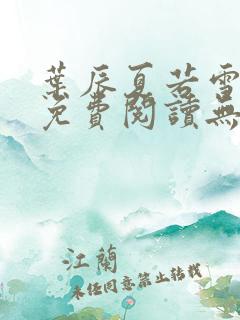 葉辰夏若雪
免費閱讀無
江蘭
未經同意禁止轉載